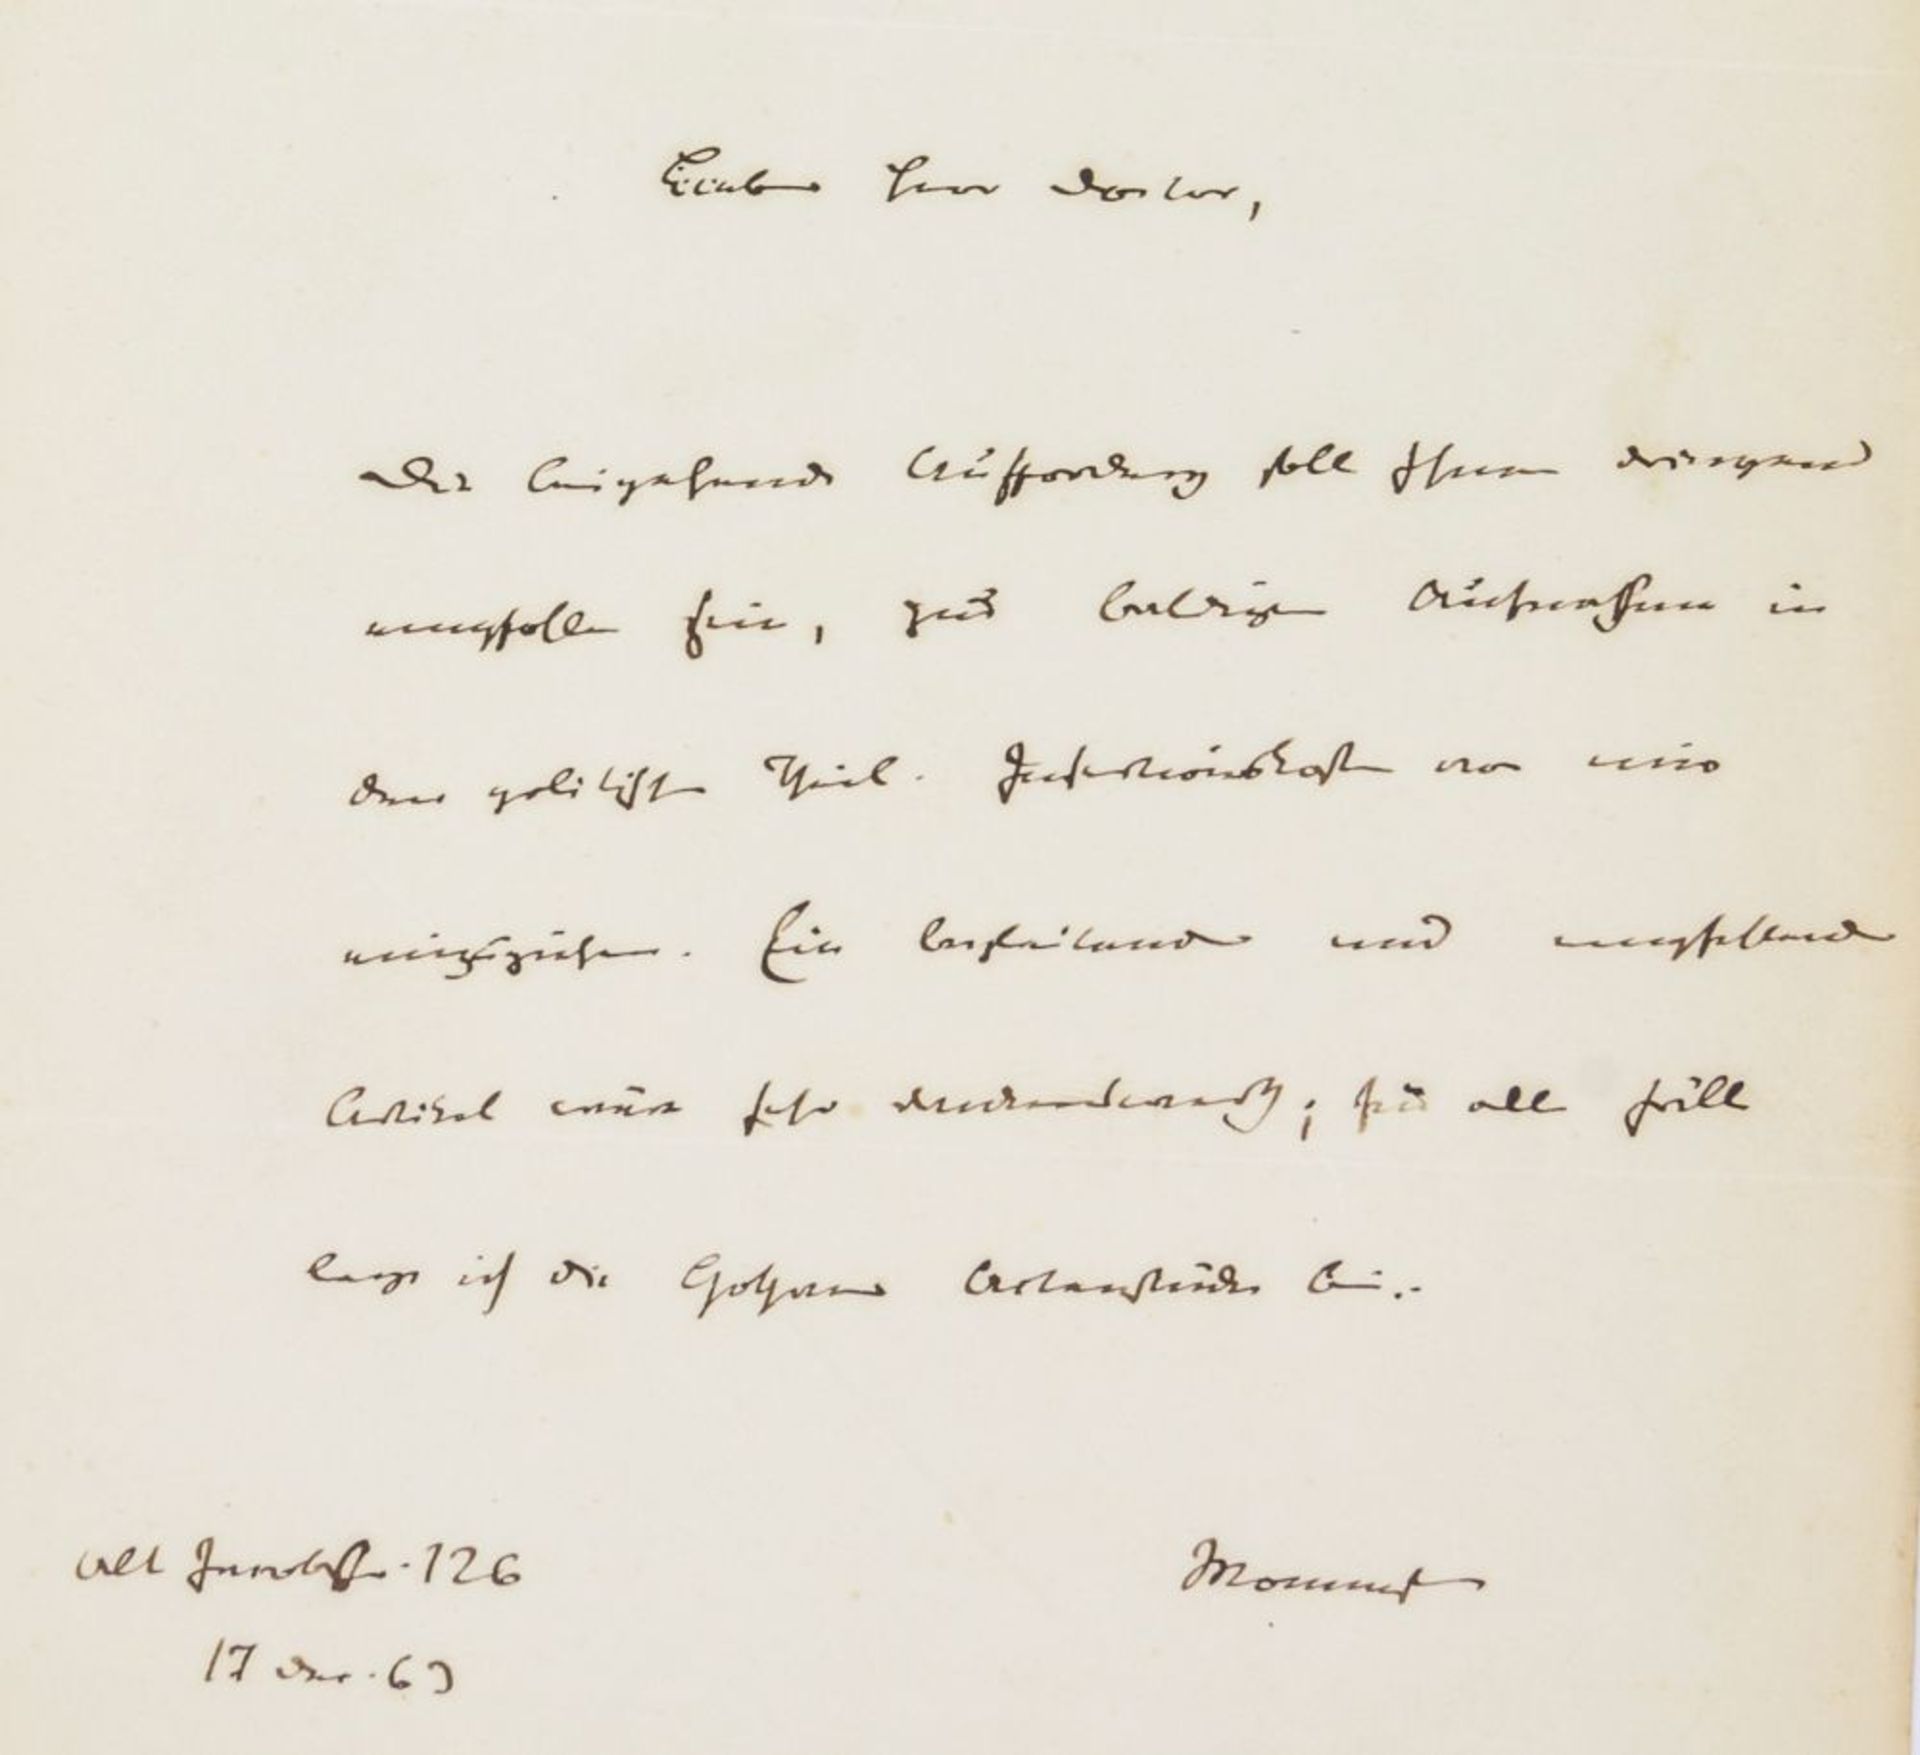 Lieber Herr Doctor,
Die beigehende Aufforderung soll Ihnen dringend
empfohlen sein, zur baldigen Aufnahme in
den politischen Theil. Insertionskosten von mir
einzuziehen. Ein begleitender und empfehlender
Artikel wäre sehr dankenswerth; für alle Fälle
lege ich die Gothaer Actenstücke bei.
Alt Jacobstr. 126
17 Dec. 63
Mommsen